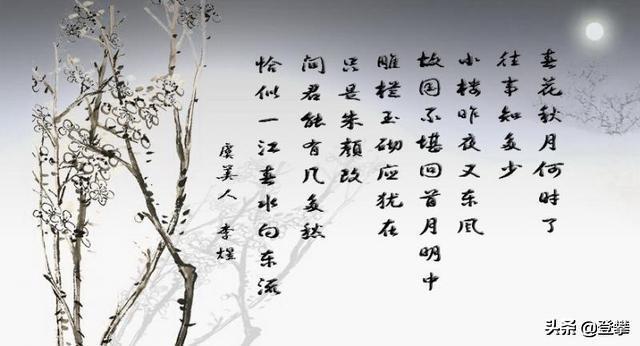 春花秋月何时了
往事知多少
小楼昨夜又东风
故国不堪回首月明中
雕栏玉砌应犹在
只是朱颜改
问君能有几多愁
恰似一江春水向东流
虞美人 李煜
头条@登攀